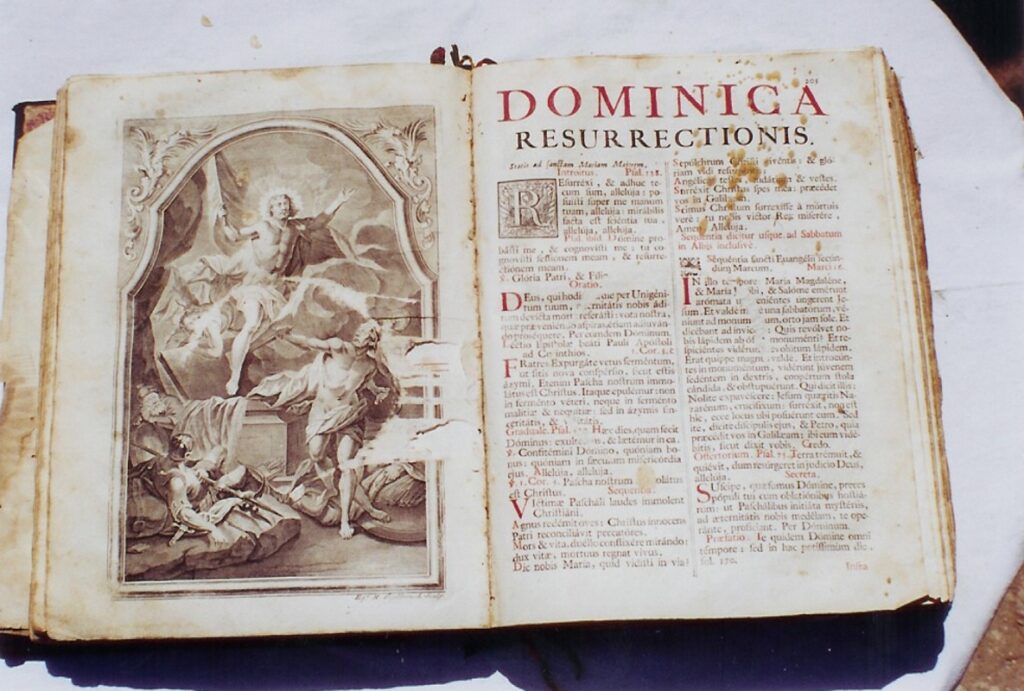 201
DOMINICA
RESURRECTIONIS.
Statio ad sanctam Mariam Majorem,
Introitus. Psal. 138.
REsurrexi, & adhuc te-
cum sum, alleluja: po-
suisti super me manum
tuam, alleluja: mirabilis
facta est scientia tua,
alleluja, alleluja.
Psal. ibid. Domine pro-
basti me, & cognovisti me: tu co-
gnovisti sessionem meam, & resurre-
ctionem meam.
℣. Gloria Patri, & Filio
Oratio.
DEus, qui hodi que per Unigeni-
tum tuum, æternitatis nobis adi-
tum devicta morte reserasti: vota nostra,
quæ præveniendo aspiras, etiam adjuvan-
do prosequere. Per eundem Dominum.
Lectio Epistolæ beati Pauli Apostoli
ad Corinthios. 1. Cor. 5.
FRatres. Expurgate vetus fermentum,
ut sitis nova conspersio, sicut estis
azymi. Etenim Pascha nostrum immo-
latus est Christus. Itaque epulemur: non
in fermento veteri, neque in fermento
malitiæ & nequitiæ: sed in azymis sin-
ceritatis, & veritatis.
Graduale. Psal. Hæc dies, quam fecit
Dominus: exulte , & lætemur in ea.
℣. Confitemini Domino, quoniam bo-
nus: quoniam in sæculum misericordia
ejus. Alleluja, alleluja.
℣. 1. Cor. 5. Pascha nostrum olatus
est Christus. Sequentia.
VIctimæ Paschali laudes immolent
Christiani.
Agnus redemit oves: Christus innocens
Patri reconciliavit peccatores.
Mors & vita, duello conflixere mirando:
dux vitæ, mortuus regnat vivus.
Dic nobis Maria, quid vidisti in via?
Sepulchrum Christi viventis: & glo-
riam vidi resurgentis.
Angelicos testes, sudarium & vestes.
Surrexit Christus spes mea: præcedet
vos in Galilæam.
Scimus Christum surrexisse à mortuis
verè: tu nobis victor Rex miserere,
Amen. Alleluja.
Sequentia dicitur usque ad Sabbatum
in Albis inclusivè.
Sequentia sancti Euangelii secun-
dùm Marcum. Marc. 16.
IN illo tempore: Maria Magdalene,
& Maria Jacobi, & Salome emerunt
aromata, ut venientes ungerent Je-
sum. Et valde mane una sabbatorum, ve-
niunt ad monumentum, orto jam sole. Et
dicebant ad invicem: Quis revolvet no-
bis lapidem ab ostio monumenti? Et re-
spicientes viderunt revolutum lapidem.
Erat quippe magnus valde. Et introeun-
tes in monumentum, viderunt juvenem
sedentem in dextris, coopertum stola
candida, & obstupuerunt. Qui dicit illis:
Nolite expavescere: Jesum quæritis Na-
zarenum, crucifixum: surrexit, non est
hic, ecce locus ubi posuerunt eum. Sed
ite, dicite discipulis ejus, & Petro, quia
præcedit vos in Galilæam: ibi eum vide-
bitis, sicut dixit vobis. Credo.
Offertorium. Psal. 75. Terra tremuit, &
quievit, dum resurgeret in judicio Deus,
alleluja. Secreta.
SUscipe, quæsumus Domine, preces
populi tui cum oblationibus hostia-
rum: ut Paschalibus initiata mysteriis,
ad æternitatis nobis medelam, te ope-
rante, proficiant. Per Dominum.
Præfatio. Te quidem Domine omni
tempore: sed in hac potissimum die.
fol. 170.
Infra